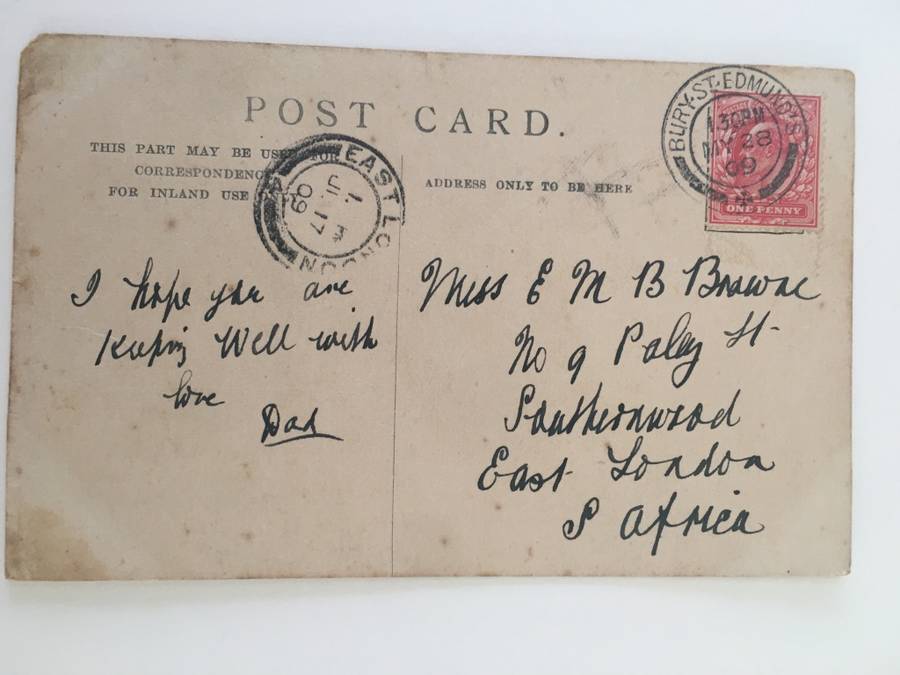 POST CARD.
THIS PART MAY BE USED FOR
CORRESPONDENCE
FOR INLAND USE
ADDRESS ONLY TO BE HERE
EAST LONDON
1
JU 17
09
BURY·ST·EDMUND'S
1.30PM
MY 28
09
ONE PENNY
I hope you are
Keeping Well with
love
Dad
Miss E M B Browne
No 9 Paley St
Southernwood
East London
S Africa